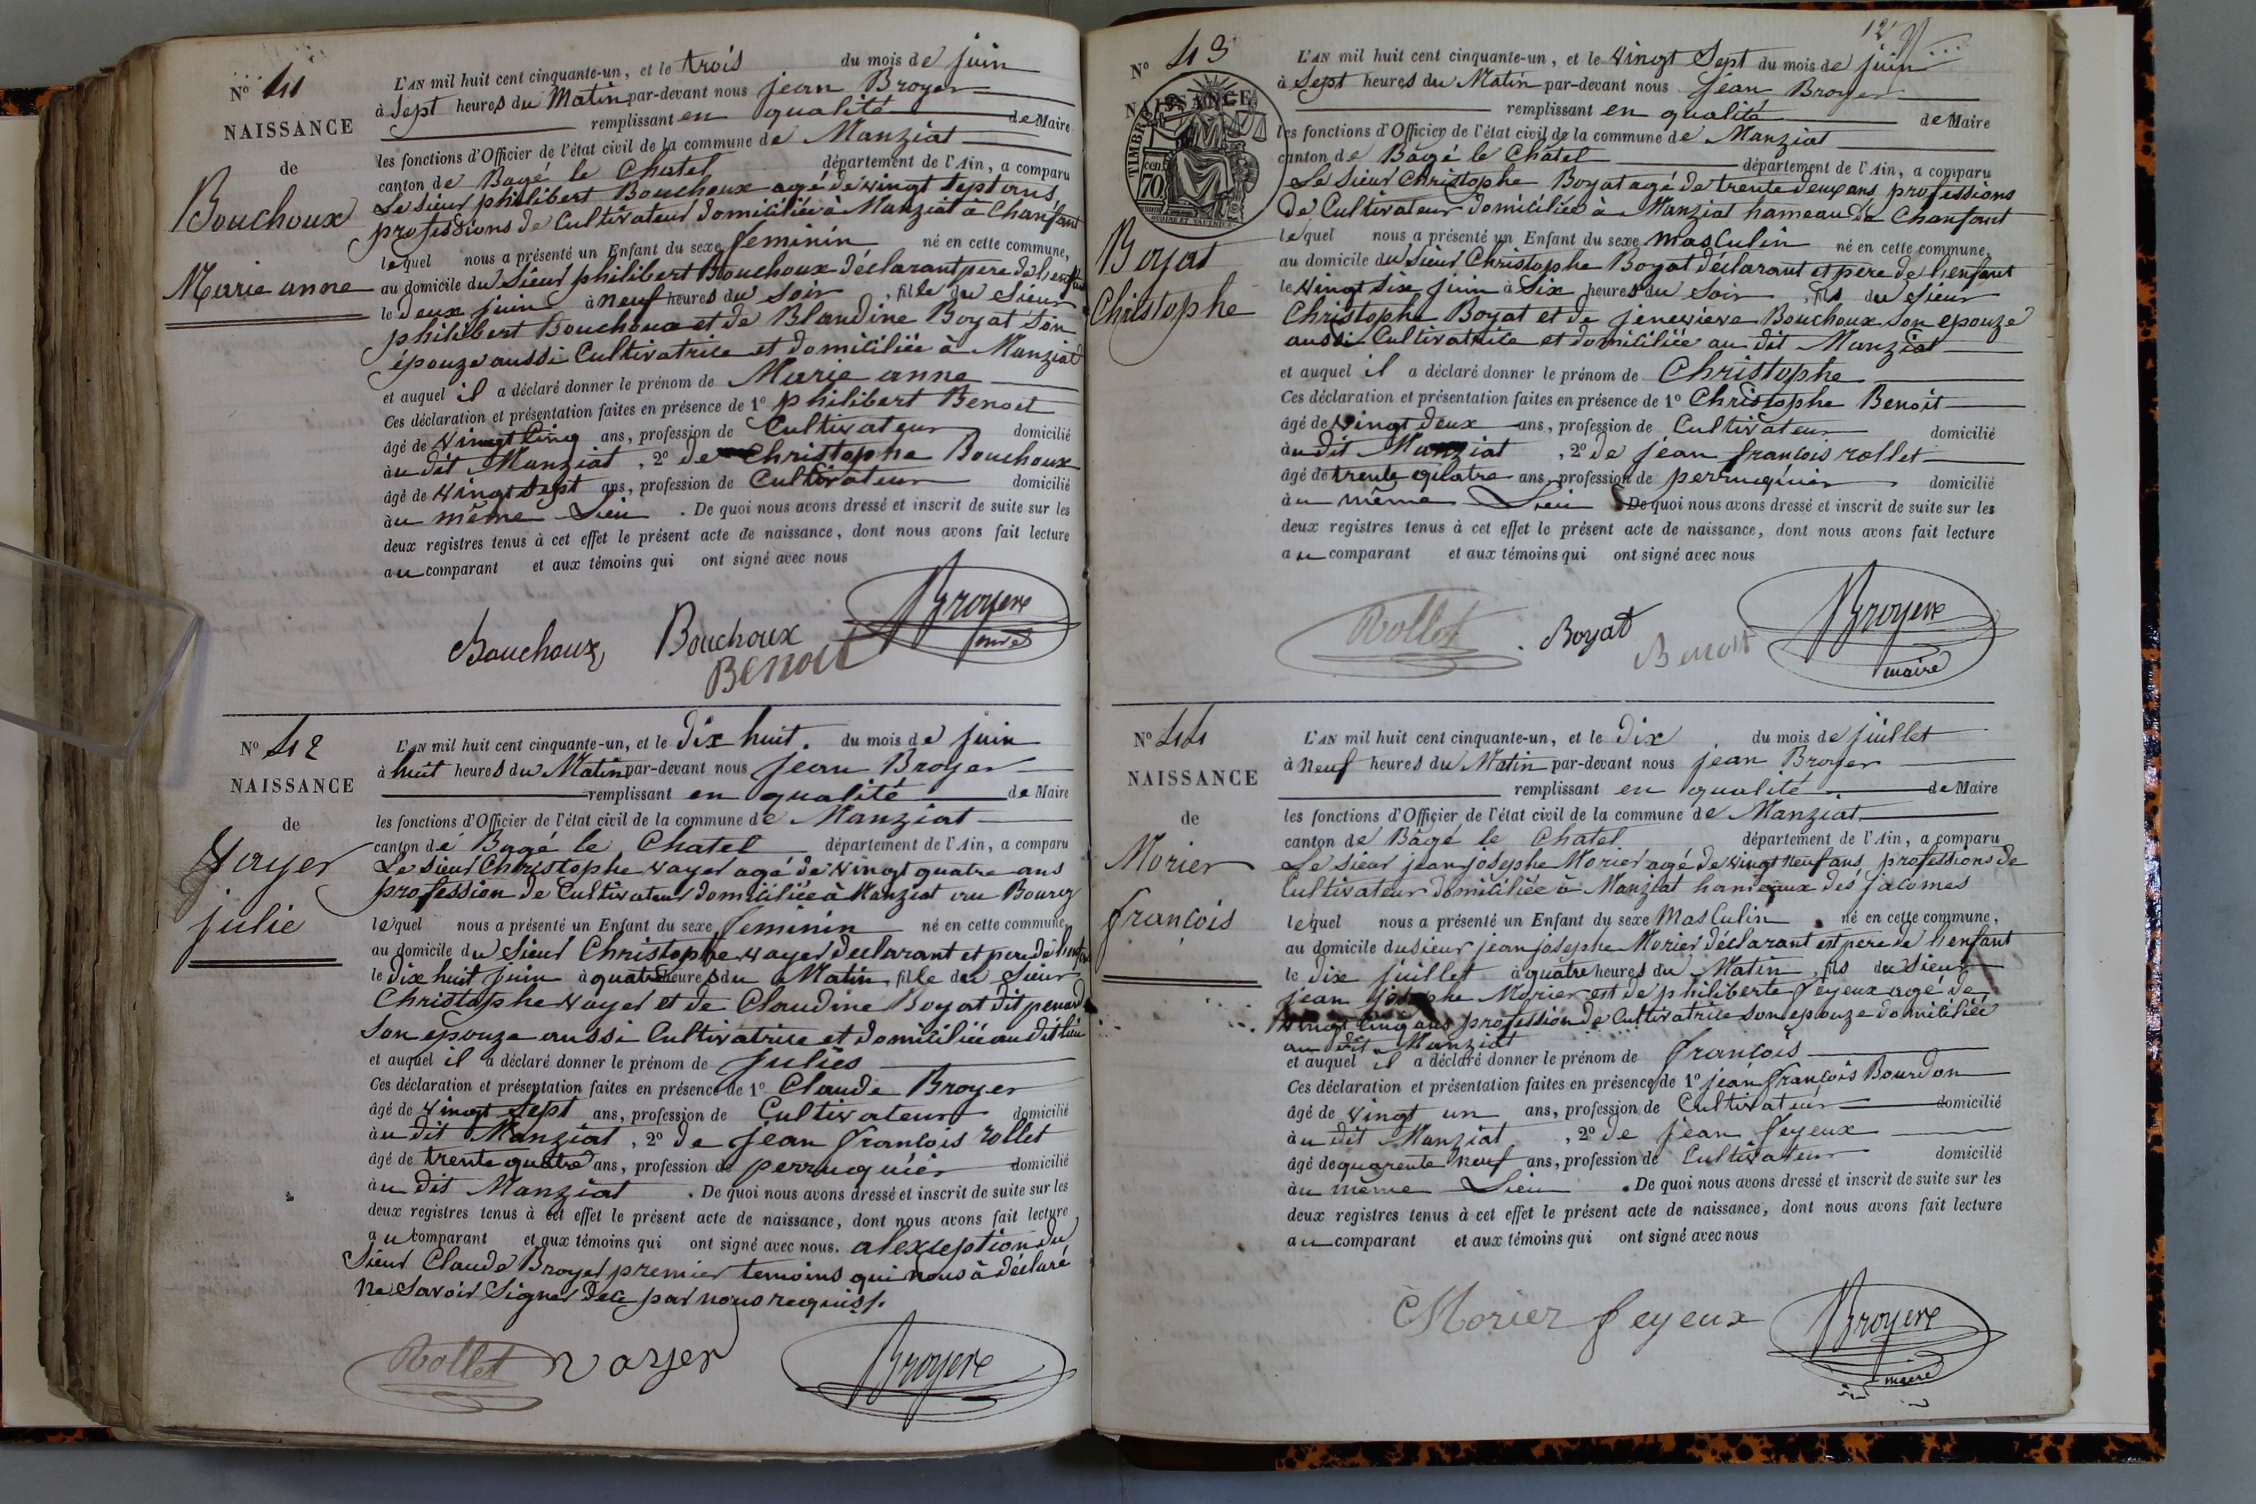 N° 41
NAISSANCE
de
Bouchoux
Marie anne
L'AN mil huit cent cinquante-un, et le trois du mois de juin
à Sept heures du Matin par-devant nous jean Broyer
remplissant en qualité de Maire
les fonctions d'Officier de l'état civil de la commune de Manziat
canton de Bagé le Chatel département de l'Ain, a comparu
Le sieur philibert Bouchoux agé de vingt sept ans
professions de Cultivateur domiciliée à Manziat à Chanfant
lequel nous a présenté un Enfant du sexe feminin né en cette commune,
au domicile du Sieur philibert Bouchoux déclarant pere de l'enfant
le deux juin à neuf heures du soir, fille du Sieur
philibert Bouchoux et de Blandine Boyat son
épouze aussi Cultivatrice et domiciliée à Manziat
et auquel il a déclaré donner le prénom de Marie anne
Ces déclaration et présentation faites en présence de 1° philibert Benoit
âgé de vingt Cinq ans, profession de Cultivateur domicilié
au dit Manziat, 2° de Christophe Bouchoux
âgé de vingt sept ans, profession de Cultivateur domicilié
au même Lieu. De quoi nous avons dressé et inscrit de suite sur les
deux registres tenus à cet effet le présent acte de naissance, dont nous avons fait lecture
au comparant et aux témoins qui ont signé avec nous
Bouchoux Bouchoux Broyere
Benoit
N° 42
NAISSANCE
de
Vayer
julie
L'AN mil huit cent cinquante-un, et le dix huit. du mois de juin
à huit heures du Matin par-devant nous jean Broyer
remplissant en qualité de Maire
les fonctions d'Officier de l'état civil de la commune de Manziat
canton de Bagé le Chatel département de l'Ain, a comparu
Le sieur Christophe vayer agé de vingt quatre ans
profession de Cultivateur domiciliée à Manziat au Bourg
lequel nous a présenté un Enfant du sexe feminin né en cette commune,
au domicile du Sieur Christophe vayer declarant et pere de l'enfant
le dix huit juin à quatre heures du Matin, fille du Sieur
Christophe vayer et de Claudine Boyat dit penard
Son epouze aussi Cultivatrice et domiciliée au dit lieu
et auquel il a déclaré donner le prénom de julies
Ces déclaration et présentation faites en présence de 1° Claude Broyer
âgé de vingt sept ans, profession de Cultivateur domicilié
au dit Manziat, 2° de jean francois rollet
âgé de trente quatre ans, profession de perruquiér domicilié
au dit Manziat. De quoi nous avons dressé et inscrit de suite sur les
deux registres tenus à cet effet le présent acte de naissance, dont nous avons fait lecture
au comparant et aux témoins qui ont signé avec nous. alexseption du
Sieur Claude Broyer premier temoins qui nous à déclaré
ne Savoir Signer de ce par nous requis.
Rollet vayer Broyere
N° 43
NAISSANCE
TIMBRE
70 cen
Boyat
Christophe
L'AN mil huit cent cinquante-un, et le vingt Sept du mois de juin
à Sept heures du Matin par-devant nous jean Broyer
remplissant en qualité de Maire
les fonctions d'Officier de l'état civil de la commune de Manziat
canton de Bâgé le Châtel département de l'Ain, a comparu
Le Sieur Christophe Boyat agé de trente deux ans professions
de Cultivateur domiciliée à Manziat hameau de Chanfant
lequel nous a présenté un Enfant du sexe masculin né en cette commune,
au domicile du Sieur Christophe Boyat déclarant et pere de l'enfant
le vingt Six juin à Six heures du Soir, fils du Sieur
Christophe Boyat et de jenevieve Bouchoux son epouze
aussi Cultivatrice et domiciliée au dit Manziat
et auquel il a déclaré donner le prénom de Christophe
Ces déclaration et présentation faites en présence de 1° Christophe Benoit
âgé de vingt deux ans, profession de Cultivateur domicilié
au dit Manziat, 2° de jean françois rollet
âgé de trente quatre ans, profession de perruquiér domicilié
au même Lieu De quoi nous avons dressé et inscrit de suite sur les
deux registres tenus à cet effet le présent acte de naissance, dont nous avons fait lecture
au comparant et aux témoins qui ont signé avec nous
Rollet Boyat Benoit Broyere
maire
N° 44
NAISSANCE
de
Morier
françois
L'AN mil huit cent cinquante-un, et le dix du mois de juillet
à neuf heures du Matin par-devant nous jean Broyer
remplissant en qualité de Maire
les fonctions d'Officier de l'état civil de la commune de Manziat
canton de Bâgé le Chatel département de l'Ain, a comparu
Le sieur jean josephe Morier agé de vingt neuf ans professions de
Cultivateur domiciliée à Manziat hameaux des jacomes
lequel nous a présenté un Enfant du sexe Masculin né en cette commune,
au domicile du sieur jean josephe Morier déclarant est pere de l'enfant
le dix juillet à quatre heures du Matin, fils du sieur
jean josephe Morier est de philiberte feyeux agé de
vingt Cinq ans profession de Cultivatrice son epouze domiciliée
au dit Manziat
et auquel il a déclaré donner le prénom de françois
Ces déclaration et présentation faites en présence de 1° jean françois Bourdon
âgé de vingt un ans, profession de Cultivateur domicilié
au dit Manziat, 2° de jean feyeux
âgé de quarente neuf ans, profession de Cultivateur domicilié
au même Lieu. De quoi nous avons dressé et inscrit de suite sur les
deux registres tenus à cet effet le présent acte de naissance, dont nous avons fait lecture
au comparant et aux témoins qui ont signé avec nous
Morier feyeux Broyere
maire